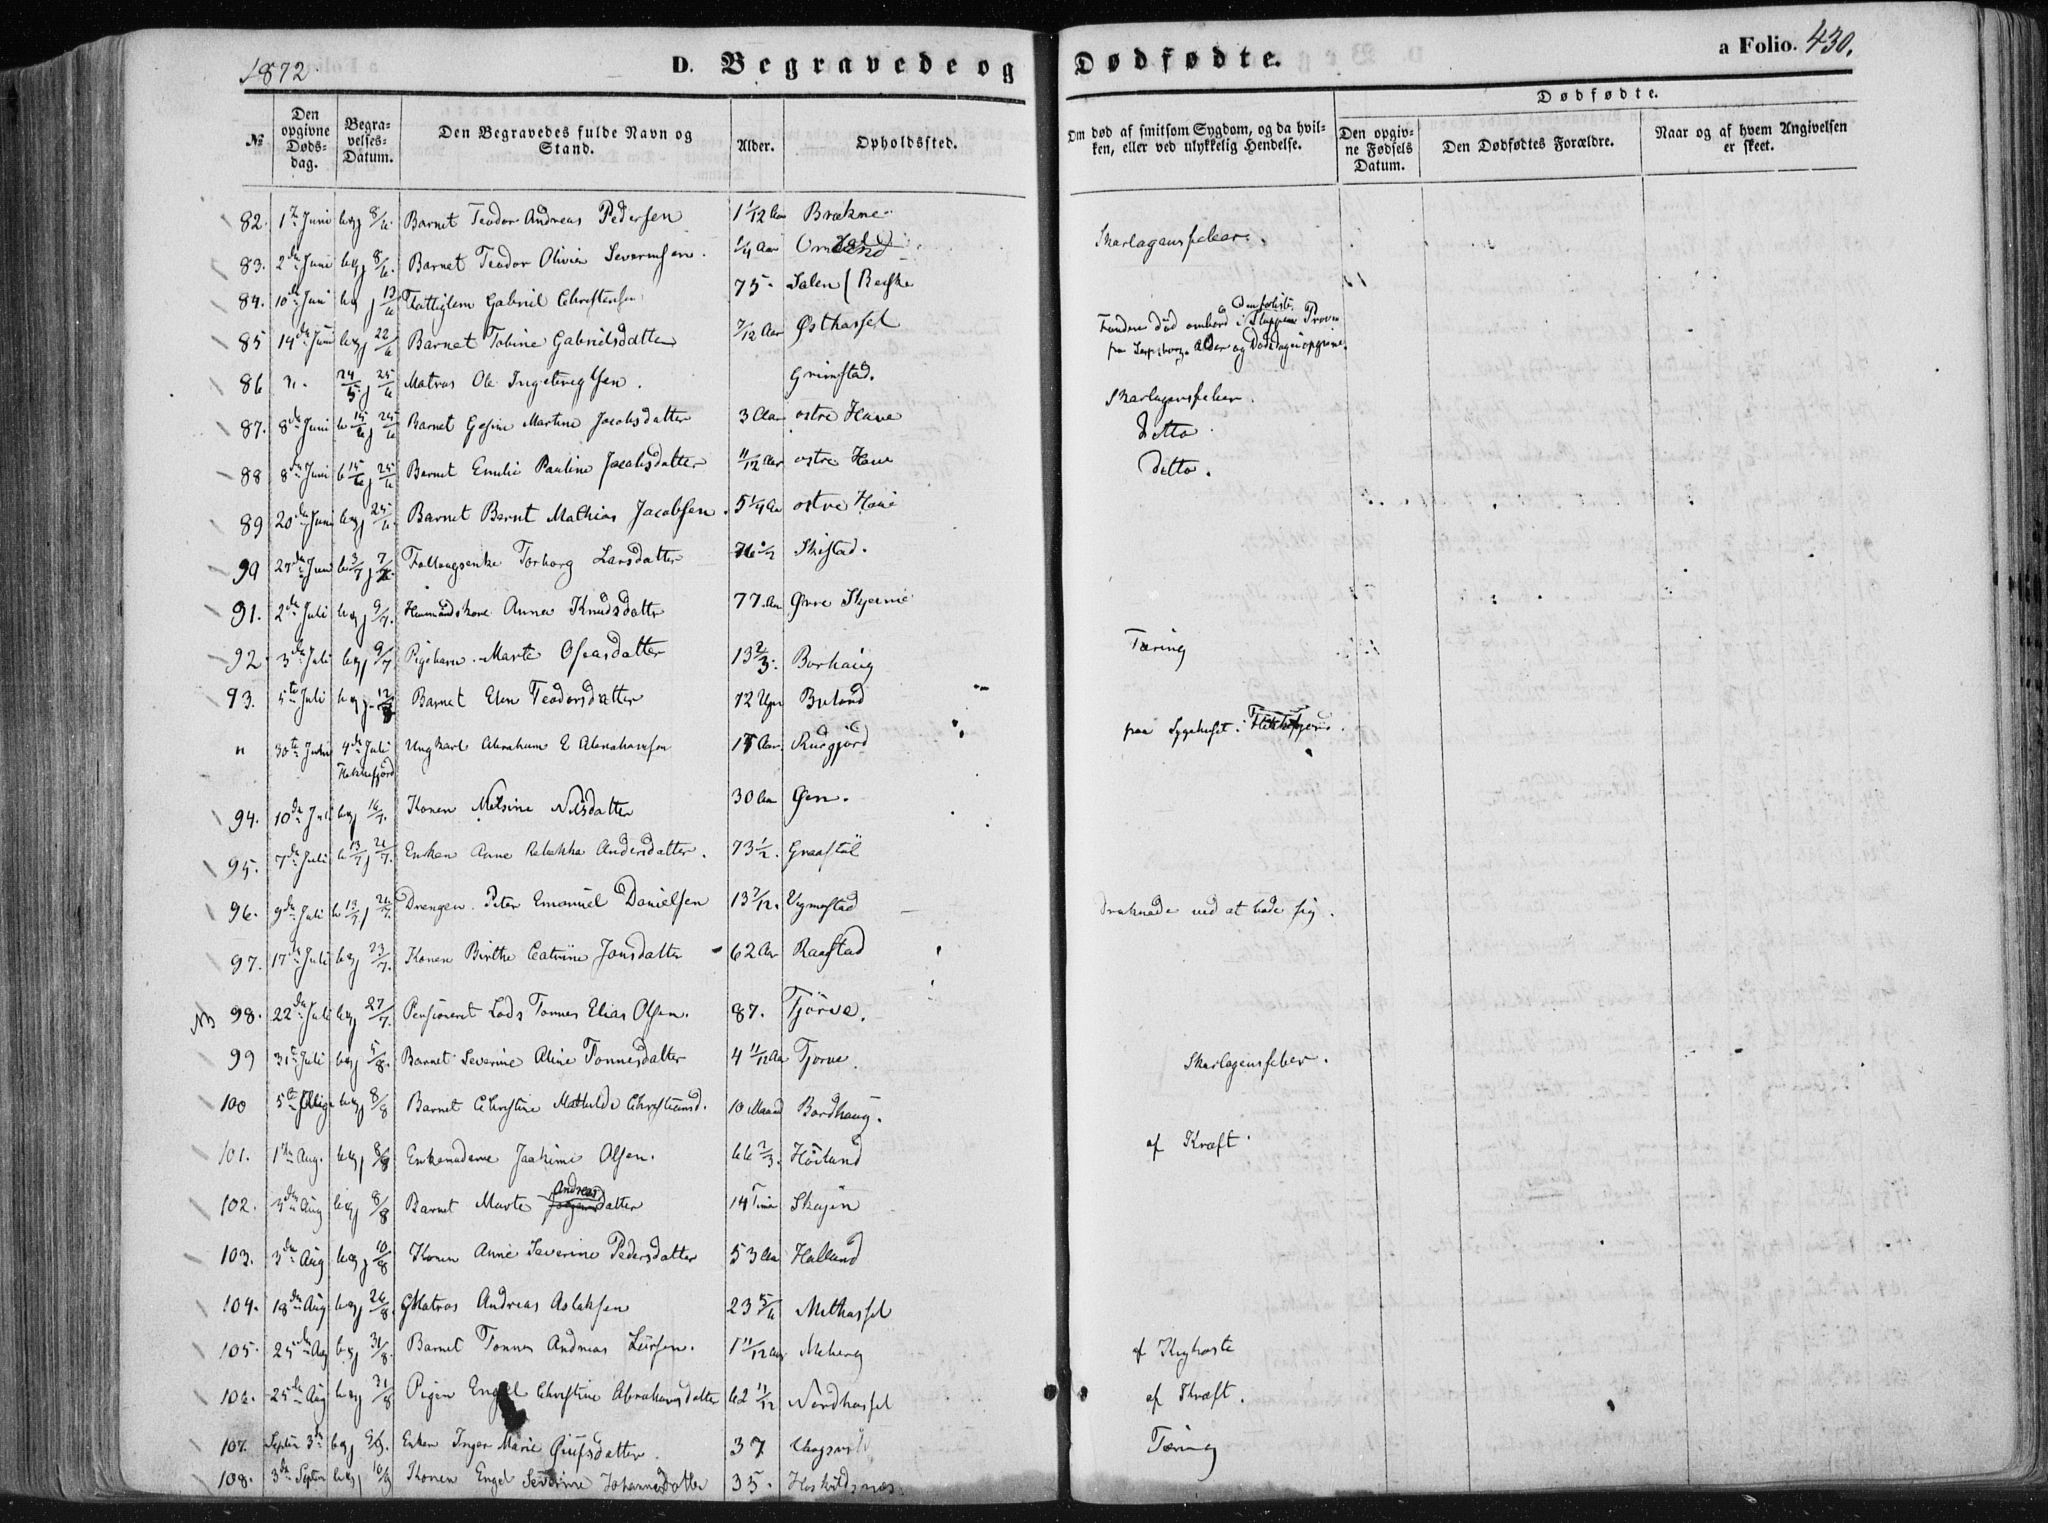 1872.
D. Begravede og Dødfødte.
a Folio. 430.
No
Den opgivne Dødsdag.
Begravelses-Datum.
Den Begravedes fulde Navn og Stand.
Alder.
Opholdssted.
Om død af smitsom Sygdom, og da hvilken, eller ved ulykkelig Hendelse.
Dødfødte.
Den opgivne Fødsels Datum.
Den Dødfødtes Forældre.
Naar og af hvem Angivelsen er skeet.
82. 1ste Juni 8/6. Barnet Teodor Andreas Pedersen 1 1/12 Aar Brækne
83. 2den Juni 8/6. Barnet Teodor Olivier Severinsen. 1/4 Aar Skarlagensfeber.
84. 10de Juni 13/6 Fattiglem Gabriel Christensen 75. Salen
85 14de Juni 22/6 Barnet Tobine Gabrielsdatter 7/12 Aar Østhassel
Funden død ombord i Sluppen Prøven
86 24/5 25/6 Matros Ole. Grimstad.
87. 8de Juni 15/6 25/6 Barnet Gesine Martine Jacobsdatter 3 Aar østre Haue Skarlagensfeber.
88 8de Juni 15/6 25/6 Barnet Emilie Pauline Jacobsdatter 11/12 Aar østre Haue Ditto
89 20de Juni 25/6 Barnet Bernt Mathias Jacobsen. 5 1/4 Aar østre Haue Ditto.
90 27de Juni 3/7 7/7. Torborg Larsdatter 76 1/2 Skistad.
91. 2den Juli 9/7. Anna Knudsdatter 77. Aar Øvre Skjerne
92 3die Juli 9/7 Pigebarn. Marte Oseasdatter 13 2/3. Borhaug Tæring
93. 5te Juli 12/8 Barnet Elen Teodorsdatter 12 Uger Briland
" 30te Juni 4de Juli Flekkefjord Ungkarl Abraham E Abrahamsen 15 Aar. Rudjord fra Sygehuset i Flekkefjord.
94. 10de Juli 16/7. Konen Melsine Nilsdatter 30 Aar Øen.
95. 7de Juli 13/7 26/7. Enken Anne Rebekka Andersdatter. 73 1/2. Graastøl
96. 9de Juli 13/7 26/7. Drengen Peter Emanuel Danielsen 13 2/12. Vigmostad druknede ved at bade sig.
97. 17de Juli 23/7. Konen Birthe Catrine Jonsdatter 62 Aar Raastad
NB 98. 22de Juli 27/7. Pensioneret Lods Tønnes Elias Olsen. 87. Tjørve.
99 31te Juli 5/8. Barnet Severine Aline Tønnesdatter 4 11/12 Aar Tjørve Skarlagensfeber.
100 5te 8/8 Barnet Christine Mathilde Christiansd. 10 Maaned Bordhaug.
101. 1ste Aug. 8/8 Enkemanden Joakim Olsen. 66 2/3. Høiland af Kræft.
102. 3die Aug 8/8 Barnet Marte Andreasdatter 14 Timer Skajen
103. 3die Aug 10/8 Konen Anne Severine Pedersdatter 53 Aar Halland
104. 18de Aug 26/8. Matros Andreas Aslaksen 23 5/6 Midhassel
105. 25de Aug 31/8. Barnet Tønnes Andreas Larsen. 1 11/12 Aar Meberg af Kighoste
106. 25de Aug 31/8 Pigen Engel Christine Abrahamsdatter 62 11/12 Nordhassel af Kræft.
107. Septbr 3die 9/9. Enken Inger Marie. 37 Tæring
108. 3die Septbr 10/9 Konen Engel Severine Johannesdatter 35.